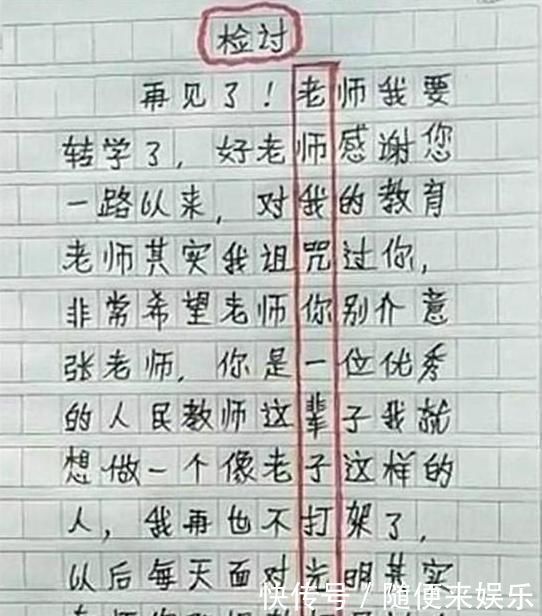 检讨
再见了！老师我要
转学了，好老师感谢您
一路以来，对我的教育
老师其实我诅咒过你，
非常希望老师你别介意
张老师，你是一位优秀
的人民教师这辈子我就
想做一个像老子这样的
人，我再也不打架了，
以后每天面对光明其实
快传号/随便来娱乐